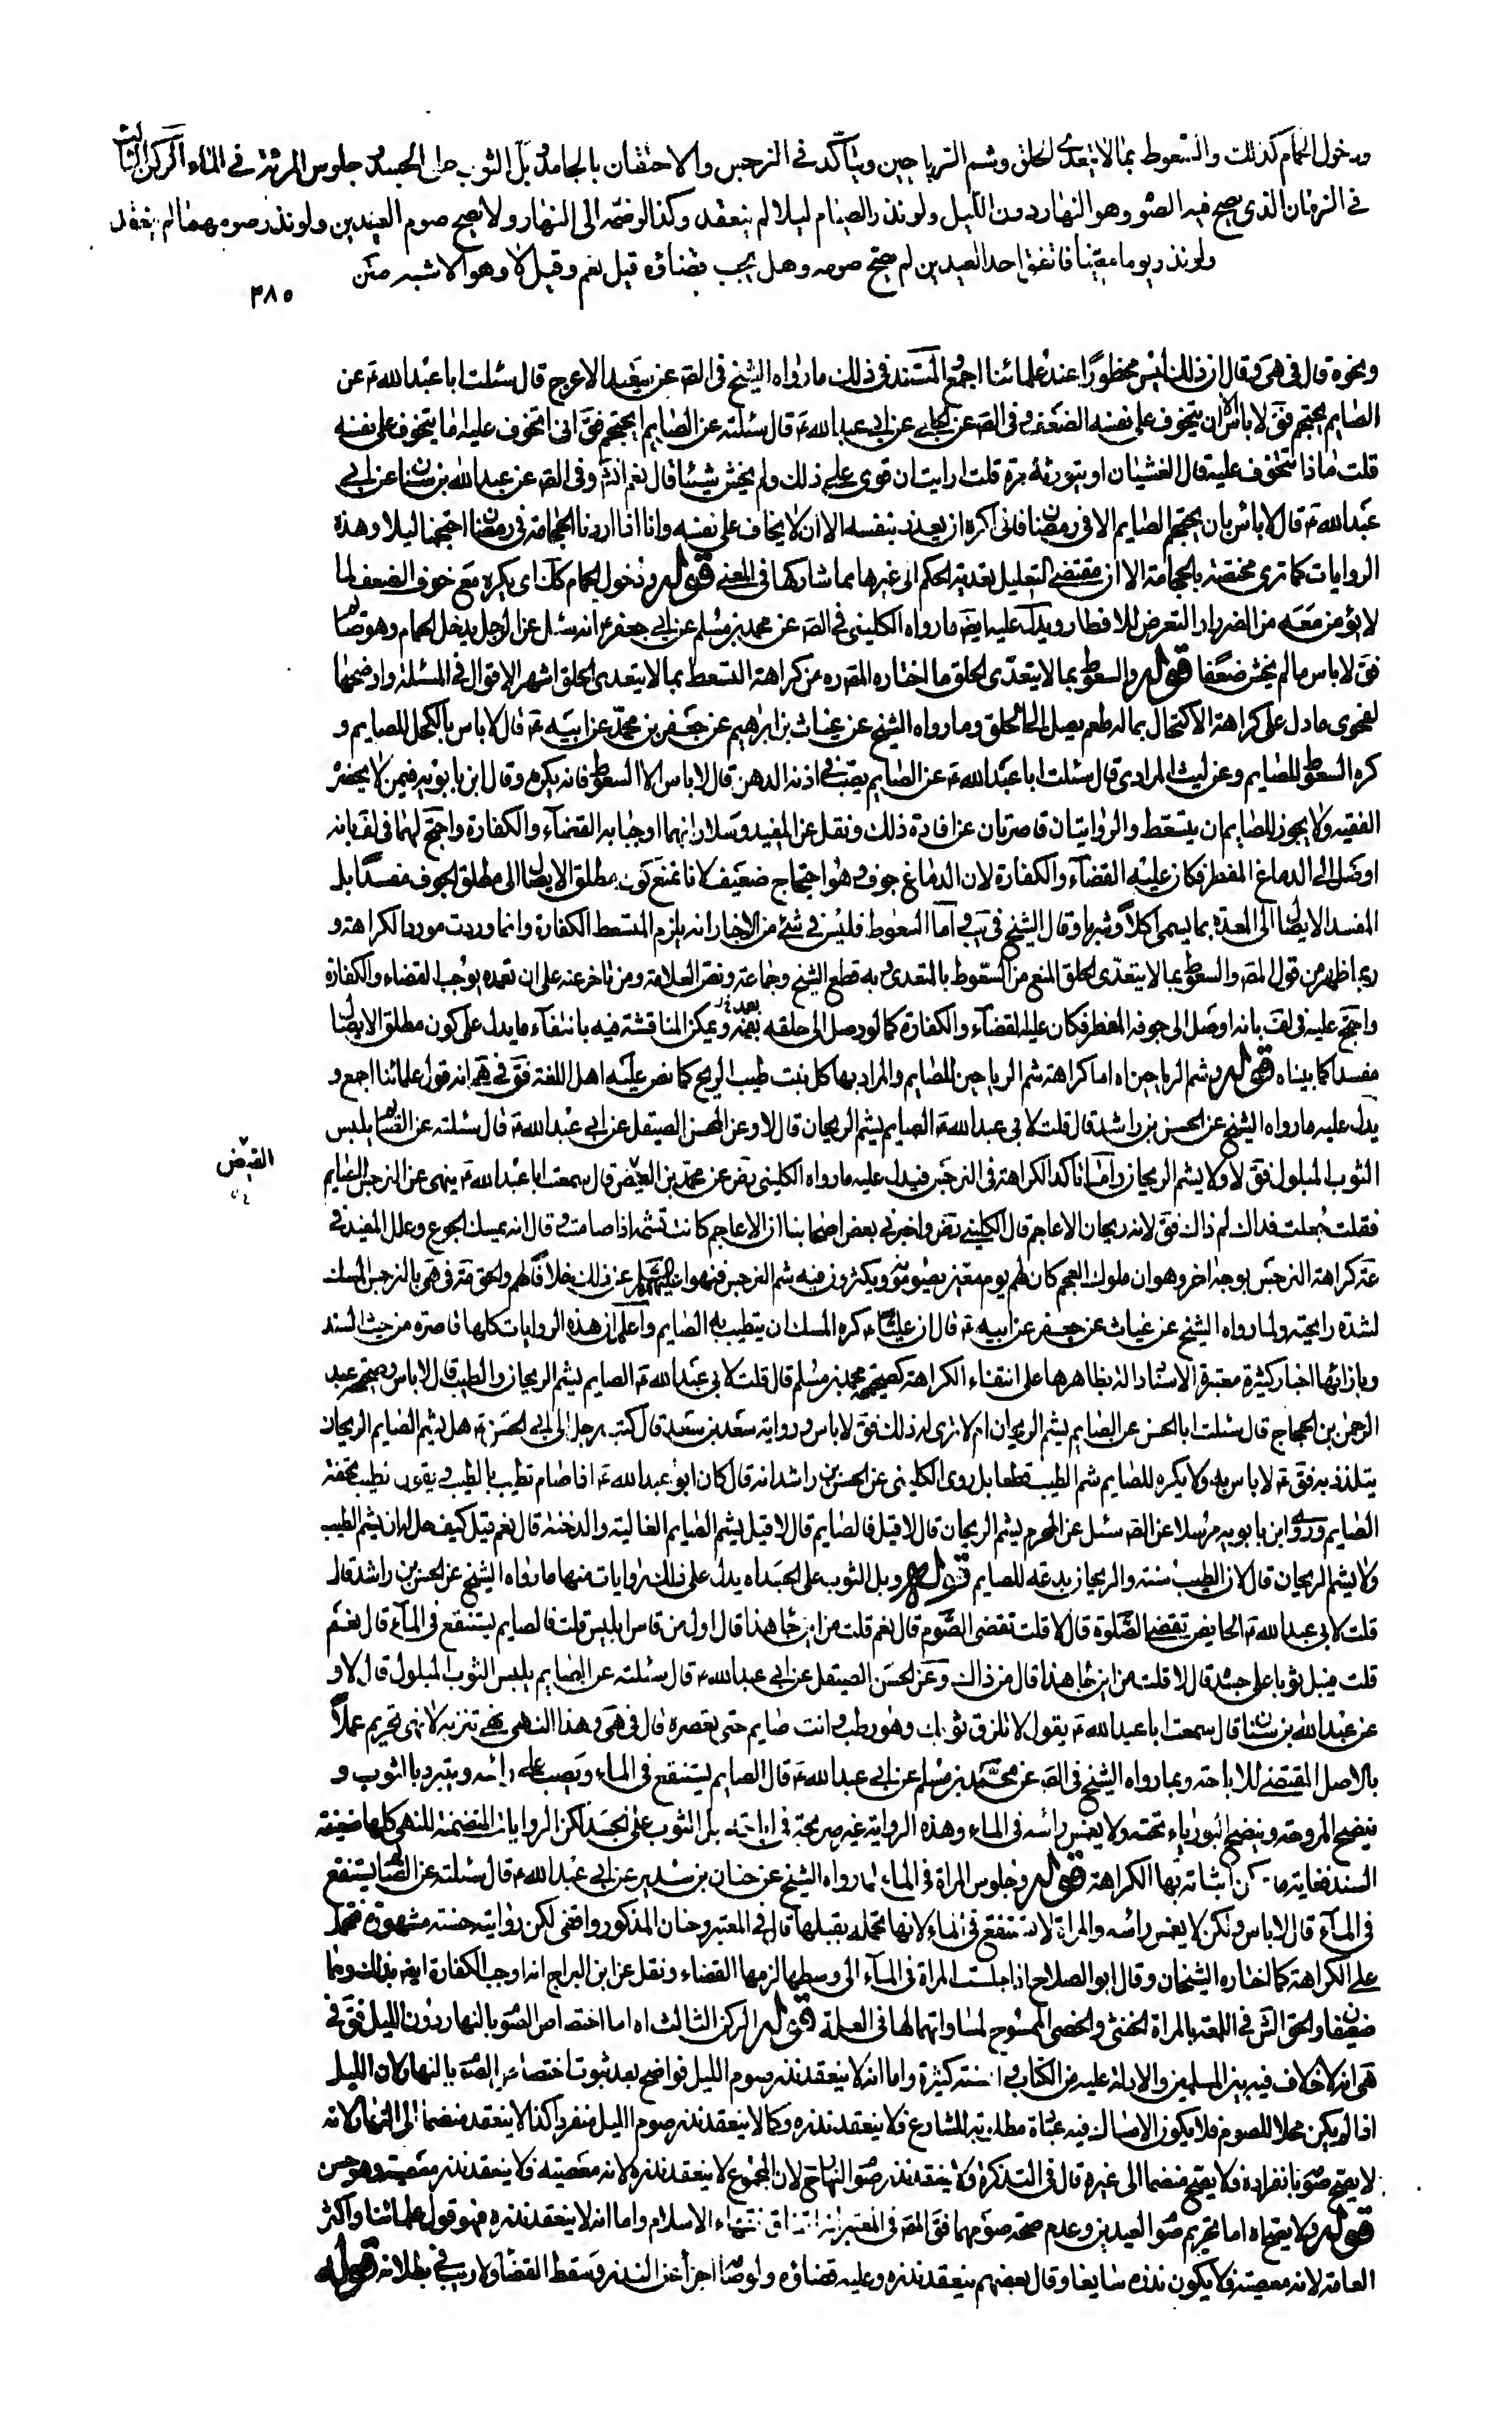 ودخول الحمام كذلك والسعوط بما لا يتعدى الحلق وشم الرياحين ويتأكد في النرجس والاحتقان بالجامد وبل الثوب على الجسد وجلوس المرئة في الماء الركن الثالث
في الزمان الذي يصح فيه الصو وهو النهار دون الليل ولو نذر الصيام ليلا لم ينعقد وكذا لو ضمه الى النهار ولا يصح صوم العيدين ولو نذر صومهما لم ينعقد
ولو نذر يوما معينا فاتفق احد العيدين لم يصح صومه وهل يجب قضاؤه قيل نعم وقيل لا وهو الاشبه متن
٣٨٥
ونحوه قال في هى وقال ان ذلك ليس محظورا عند علمائنا اجمع والمستند في ذلك ما رواه الشيخ في الصه عن سعيد الاعرج قال سئلت ابا عبد الله ع عن
الصايم يحتجم فق لا باس الا ان يتخوف على نفسه الضعف وفى الصه عن الحلبي عن ابي عبد الله ع قال سئلته عن الصايم ايحتجم فق انى اتخوف عليه اما يتخوف على نفسه
قلت ماذا يتخوف عليه قال الغشيان او يثور به مرة قلت ارايت ان قوى على ذلك ولم يخش شيئا قال نعم انشه وفى الصه عن عبد الله بن سنان عن ابي
عبد الله ع قال لا باس بان يحتجم الصايم الا في رمضان فانى اكره ان يغرر بنفسه الا ان لا يخاف على نفسه وانا اذا اردنا الحجامة في رمضان احتجمنا ليلا وهذه
الروايات كما ترى مختصة بالحجامة الا ان مقتضى التعليل تعدية الحكم الى غيرها مما شاركها في المعنى قوله ودخول الحمام كك اى يكره مع خوف الضعف لما
لا يؤمن معه من الضرر او التعرض للافطار ويدل عليه ايضه ما رواه الكليني في الصه عن محمد بن مسلم عن ابي جعفر ع انه سئل عن الرجل يدخل الحمام وهو صايم
فق لا باس ما لم يخش ضعفا قوله والسعوط بما لا يتعدى الحلق ما اختاره المصه ره من كراهة التسعط بما لا يتعدى الحلق اشهر الاقوال في المسئلة واوضحها
لفحوى ما دل على كراهة الاكتحال بما له طعم يصل الى الحلق وما رواه الشيخ عن غياث بن ابراهيم عن جعفر بن محمد عن ابيه ع قال لا باس بالكحل للصايم و
كره السعوط للصايم وعن ليث المرادى قال سئلت ابا عبد الله ع عن الصايم يصب في اذنه الدهن قال لا باس الا السعوط فانه يكره وقال ابن بابويه في من لا يحضره
الفقيه ولا يجوز للصايم ان يتسعط والروايتان قاصرتان عن افادة ذلك ونقل عن المفيد وسلار انهما اوجبا به القضاء والكفارة واحتج لهما في لف بانه
اوصل الى الدماغ المفطر فكان عليه القضاء والكفارة لان الدماغ جوف وهو احتجاج ضعيف لانا نمنع كون مطلق الايصال الى مطلق الجوف مفسدا بل
المفسد الايصال الى المعدة بما يسمى اكلا وشربا وقال الشيخ في يب واما السعوط فليس في شئ من الاخبار انه يلزم المتسعط الكفارة وانما وردت مورد الكراهة و
ربما ظهر من قول المصه والسعوط بما لا يتعدى الحلق المنع من السعوط بالمتعدى وبه قطع الشيخ وجماعة ونص العلامة ومن تاخر عنه على ان تعمده يوجب القضاء والكفارة
واحتج عليه في لف بانه اوصل الى جوفه المفطر فكان عليه القضاء والكفارة كما لو وصل الى حلقه بفمه ويمكن المناقشة فيه بانتفاء ما يدل على كون مطلق الايصال
مفسدا كما بيناه قوله وشم الرياحين اه اما كراهة شم الرياحين للصايم والمراد بها كل نبت طيب الريح كما نص عليه اهل اللغة فق في هى انه قول علمائنا اجمع و
يدل عليه ما رواه الشيخ عن الحسن بن راشد قال قلت لابى عبد الله ع الصايم يشم الريحان قال لا وعن الحسن الصيقل عن ابي عبد الله ع قال سئلته عن الصايم يلبس
القيض
الثوب المبلول فق لا ولا يشم الريحان واما تاكد الكراهة في النرجس فيدل عليه ما رواه الكليني رض عن محمد بن العيص قال سمعت ابا عبد الله ع ينهى عن النرجس للصايم
فقلت جعلت فداك لم ذاك فق لانه ريحان الاعاجم قال الكليني رض واخبرني بعض اصحابنا ان الاعاجم كانت تشمه اذا صامت وقال انه يمسك الجوع وعلل المفيد في
عه كراهة النرجس بوجه اخر وهو ان ملوك العجم كان لهم يوم معين يصومونه ويكثرون فيه شم النرجس فنهوا عليهم السلام عن ذلك خلافا لهم والحق مة في هى بالنرجس المسك
لشدة رايحته ولما رواه الشيخ عن غياث عن جعفر عن ابيه ع قال ان عليا ع كره المسك ان يتطيب به الصايم واعلم ان هذه الروايات كلها قاصرة من حيث السند
وبازائها اخبار كثيرة معتبرة الاسناد الة بظاهرها على انتفاء الكراهة كصحيحة محمد بن مسلم قال قلت لابى عبد الله ع الصايم يشم الريحان والطيب قال لا باس وصحيحة عبد
الرحمن بن الحجاج قال سئلت ابا الحسن عن الصايم يشم الريحان ام لا ترى له ذلك فق لا باس ورواية سعد بن سعد قال كتب رجل الى ابي الحسن ع هل يشم الصايم الريحان
يتلذذ به فق ع لا باس به ولا يكره للصايم شم الطيب قطعا بل روى الكليني عن الحسن بن راشد انه قال كان ابو عبد الله ع اذا صام تطيب بالطيب ويقول الطيب تحفة
الصايم وروى ابن بابويه مرسلا عن الصه سئل عن المحرم يشم الريحان قال لا قيل فالصايم قال لا قيل يشم الصايم الغالية والدخنة قال نعم قيل كيف حل له ان يشم الطيب
ولا يشم الريحان قال لان الطيب سنة والريحان بدعة للصايم قوله وبل الثوب على الجسد اه يدل على ذلك روايات منها ما رواه الشيخ عن الحسن بن راشد قال
قلت لابى عبد الله ع الحايض تقضى الصلوة قال لا قلت تقضى الصوم قال نعم قلت من اين جا هذا قال اول من قاس ابليس قلت فالصايم يستنقع في الماء قال نعم
قلت فيبل ثوبا على جسده قال لا قلت من اين جا هذا قال من ذاك وعن الحسن الصيقل عن ابي عبد الله ع قال سئلته عن الصايم يلبس الثوب المبلول قال لا و
عن عبد الله بن سنان قال سمعت ابا عبد الله ع يقول لا تلزق ثوبك وهو رطب وانت صايم حتى تعصره قال في هى وهذا النهى نهى تنزيه لا نهى تحريم عملا
بالاصل المقتضى للاباحة وبما رواه الشيخ في الصه عن محمد بن مسلم عن ابي عبد الله ع قال الصايم يستنقع في الماء ويصب على راسه ويتبرد بالثوب و
ينضح المروحة وينضح البورياء تحته ولا يغمس راسه في الماء وهذه الرواية غير صريحة في اباحة بل الثوب على الجسد لكن الروايات المتضمنة للنهى كلها ضعيفة
السند فغاية ما يمكن اثباته بها الكراهة قوله وجلوس المراة في الماء لما رواه الشيخ عن حنان بن سدير عن ابي عبد الله ع قال سئلته عن الصايم يستنقع
في الماء قال لا باس ولكن لا يغمس راسه والمراة لا تستنقع في الماء لانها تحمله بقبلها قال في المعتبر وحنان المذكور واقفى لكن روايته حسنة مشهورة فتحمل
على الكراهة كما اختاره الشيخان وقال ابو الصلاح اذا جلست المراة في الماء الى وسطها لزمها القضاء ونقل عن ابن البراج انه اوجب الكفارة ايضه بذلك وهما
ضعيفان والحق الش في اللمعة بالمراة الخنثى والخصى الممسوح لمساواتهما لها في العلة قوله الركن الثالث اه اما اختصاص الصو بالنهار دون الليل فق في
هى انه لا خلاف فيه بين المسلمين والادلة عليه من الكتاب والسنة كثيرة واما انه لا ينعقد نذر صوم الليل فواضح بعد ثبوت اختصاص الصو بالنهار لان الليل
اذا لم يكن محلا للصوم فلا يكون الامساك فيه عبادة مطلوبة للشارع فلا ينعقد نذره وكما لا ينعقد نذر صوم الليل منفردا كذا لا ينعقد منضما الى النهار لانه
لا يصح صوما بانفراده فلا يصح منضما الى غيره قال في التذكرة ولا ينعقد نذر صو النهار ح لان المجموع لا ينعقد نذره لانه معصية فلا ينعقد نذر معصية وهو حسن
قوله ولا يصح اه اما تحريم صو العيدين وعدم صحة صومهما فق المصه في المعتبر ان عليه اتفاق علماء الاسلام واما انه لا ينعقد نذره فهو قول علمائنا واكثر
العامة لانه معصية فلا يكون نذره سايغا وقال بعضهم ينعقد نذره وعليه قضاؤه ولو صام اجزأ عن النذر وسقط القضا ولا ريب في بطلانه قوله